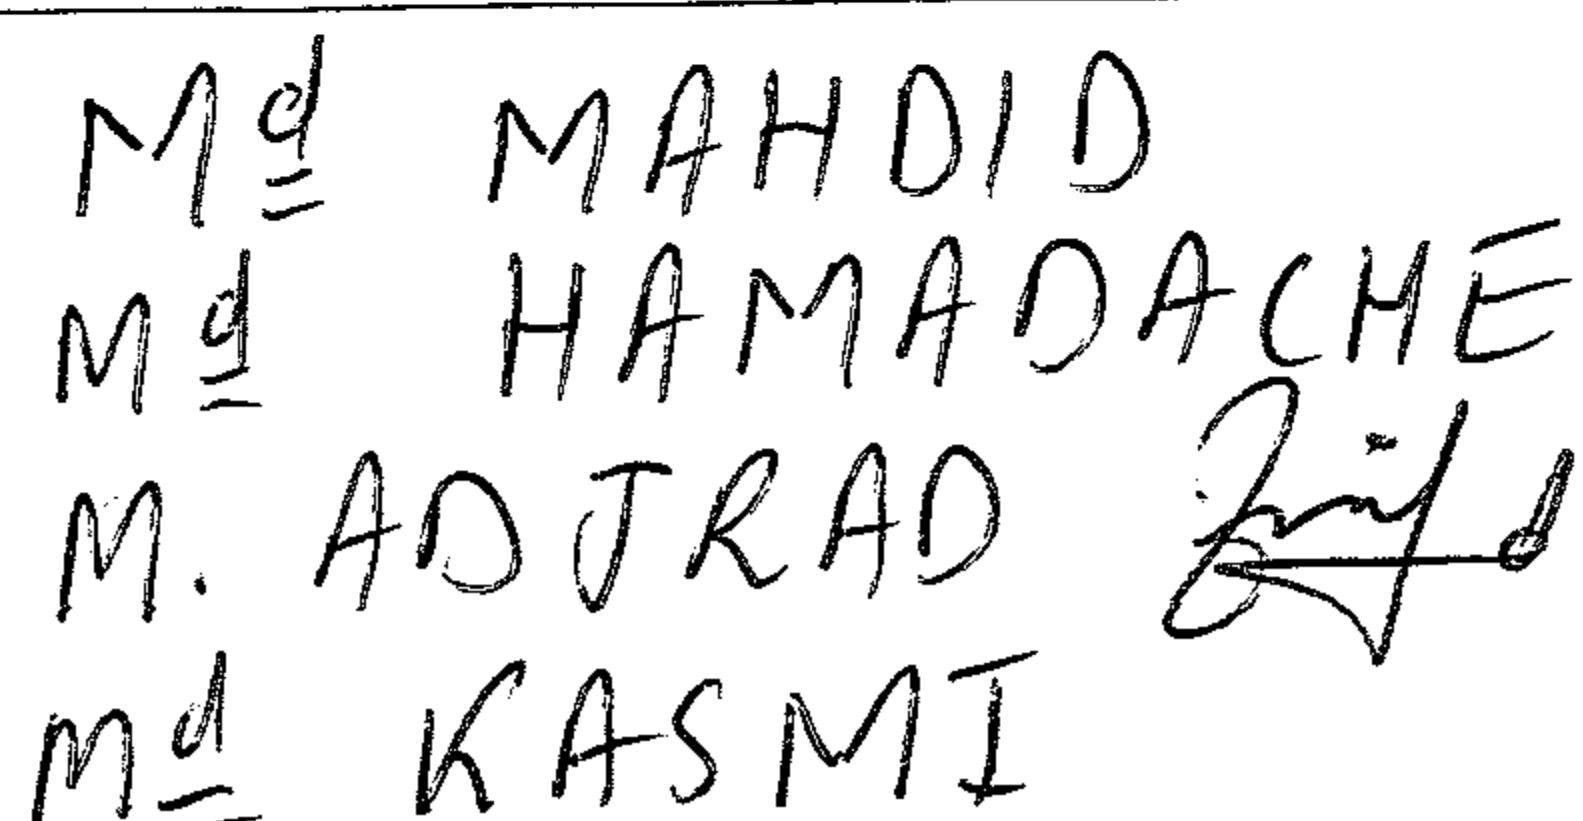 Md MAHDID
Md HAMADACHE
M. ADJRAD
Md KASMI